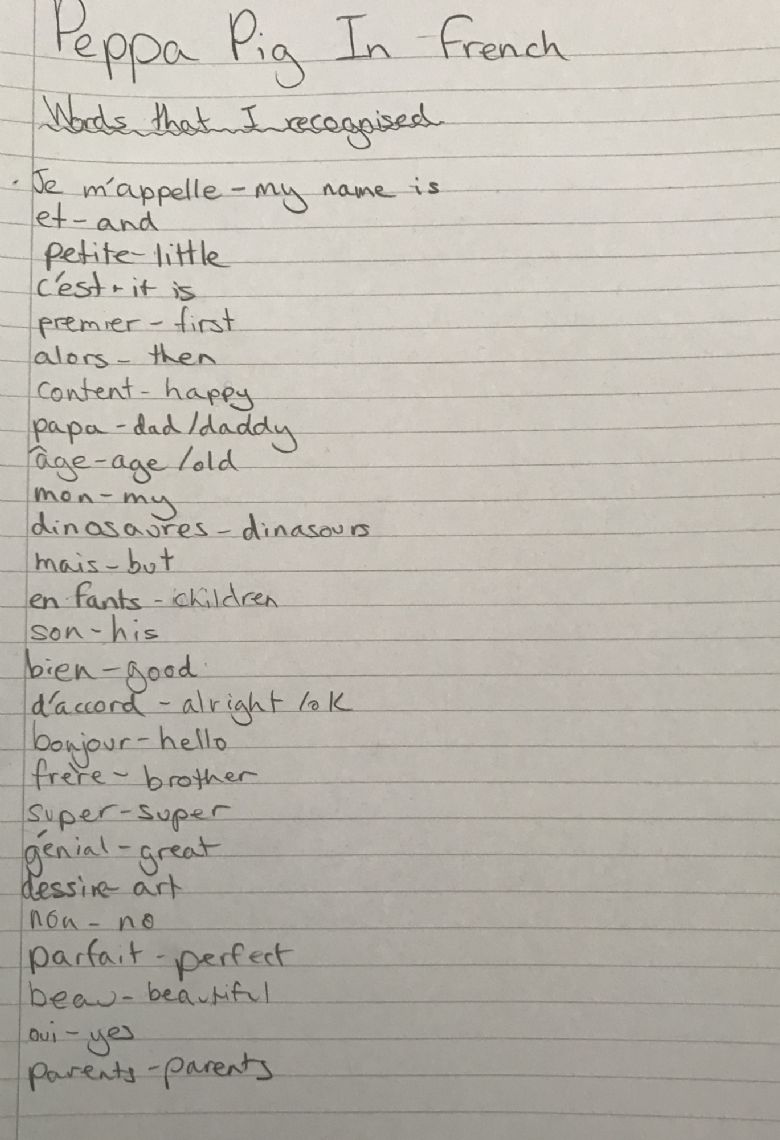 Peppa Pig In French
Words that I recognised
· Je m'appelle - my name is
et - and
petite - little
c'est - it is
premier - first
alors - then
content - happy
papa - dad/daddy
âge - age/old
mon - my
dinosaures - dinasours
mais - but
enfants - children
son - his
bien - good
d'accord - alright/ok
bonjour - hello
frère - brother
super - super
génial - great
dessin - art
non - no
parfait - perfect
beau - beautiful
oui - yes
parents - parents